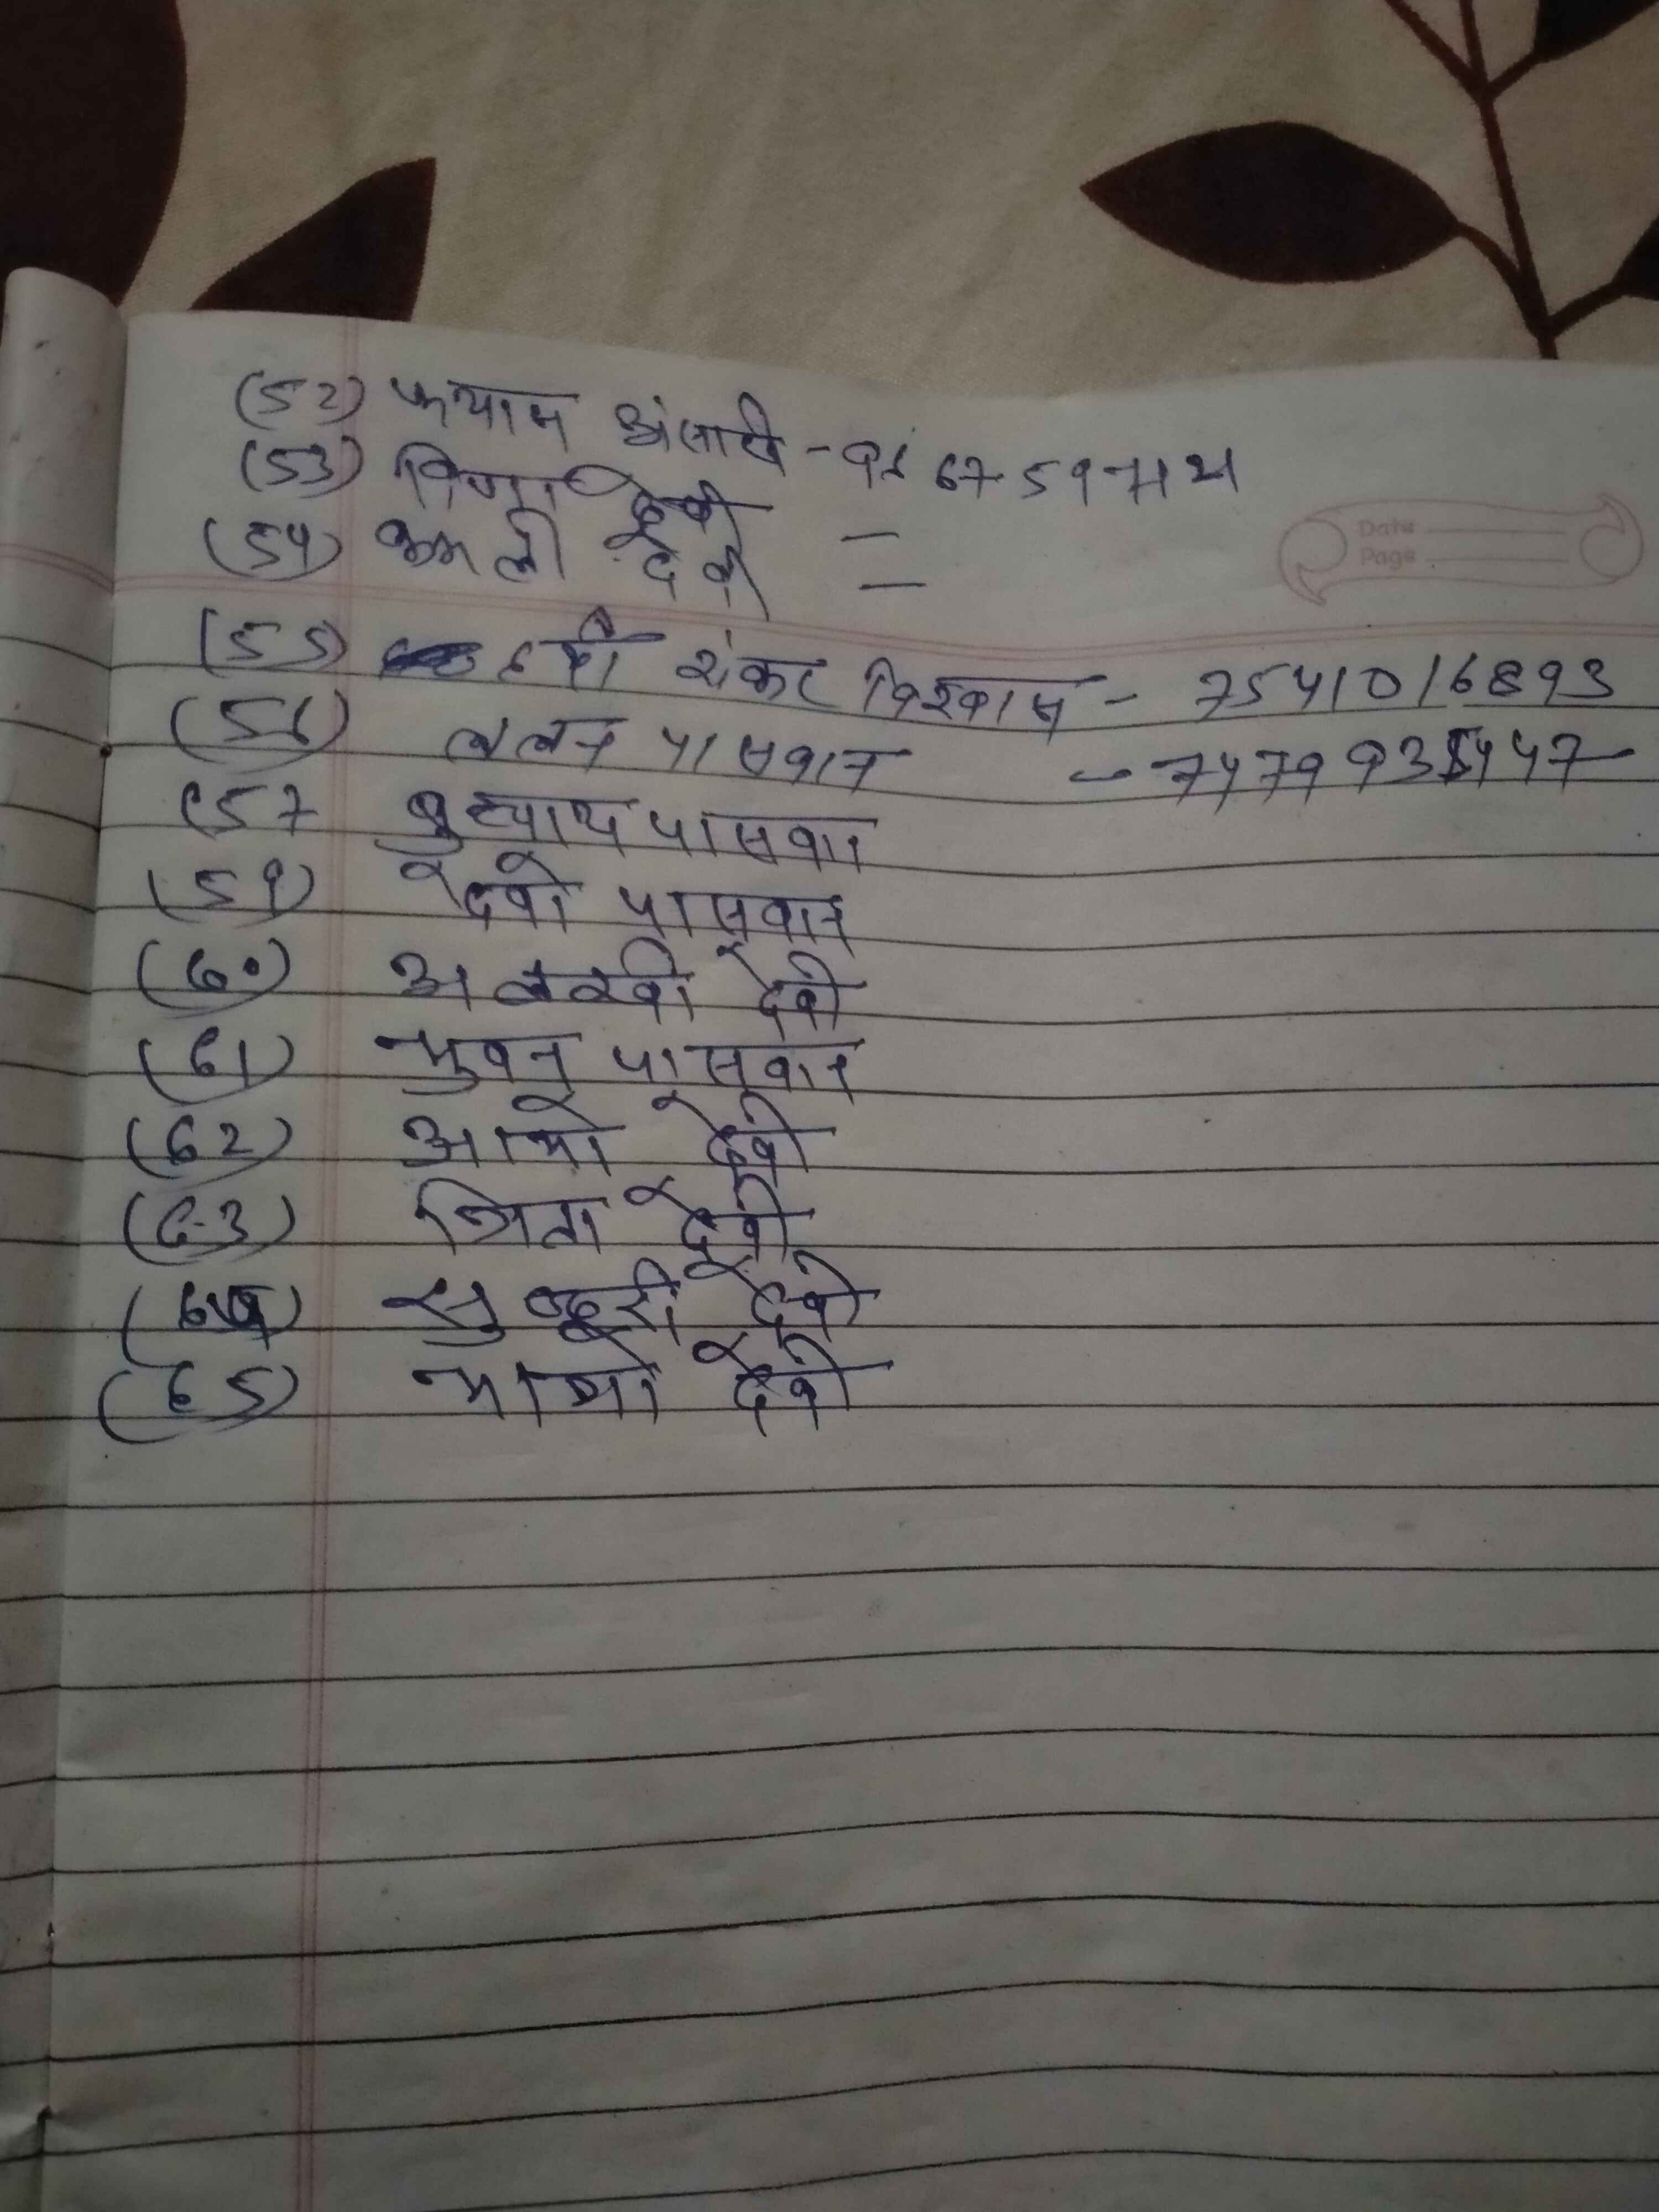 (52) कयाम अंसारी -
(53) विणा देवी -
(54) कमली देवी -
Date
Page
(55) हरी शंकर विश्वास - 7541016893
(56) ललन पासवान -
(57 पासवान
(59) देवी पासवान
(60) अलखी देवी
(61) भुवन पासवान
(62) आभो देवी
(63) देवी
(64) सुन्दरी देवी
(65) देवी